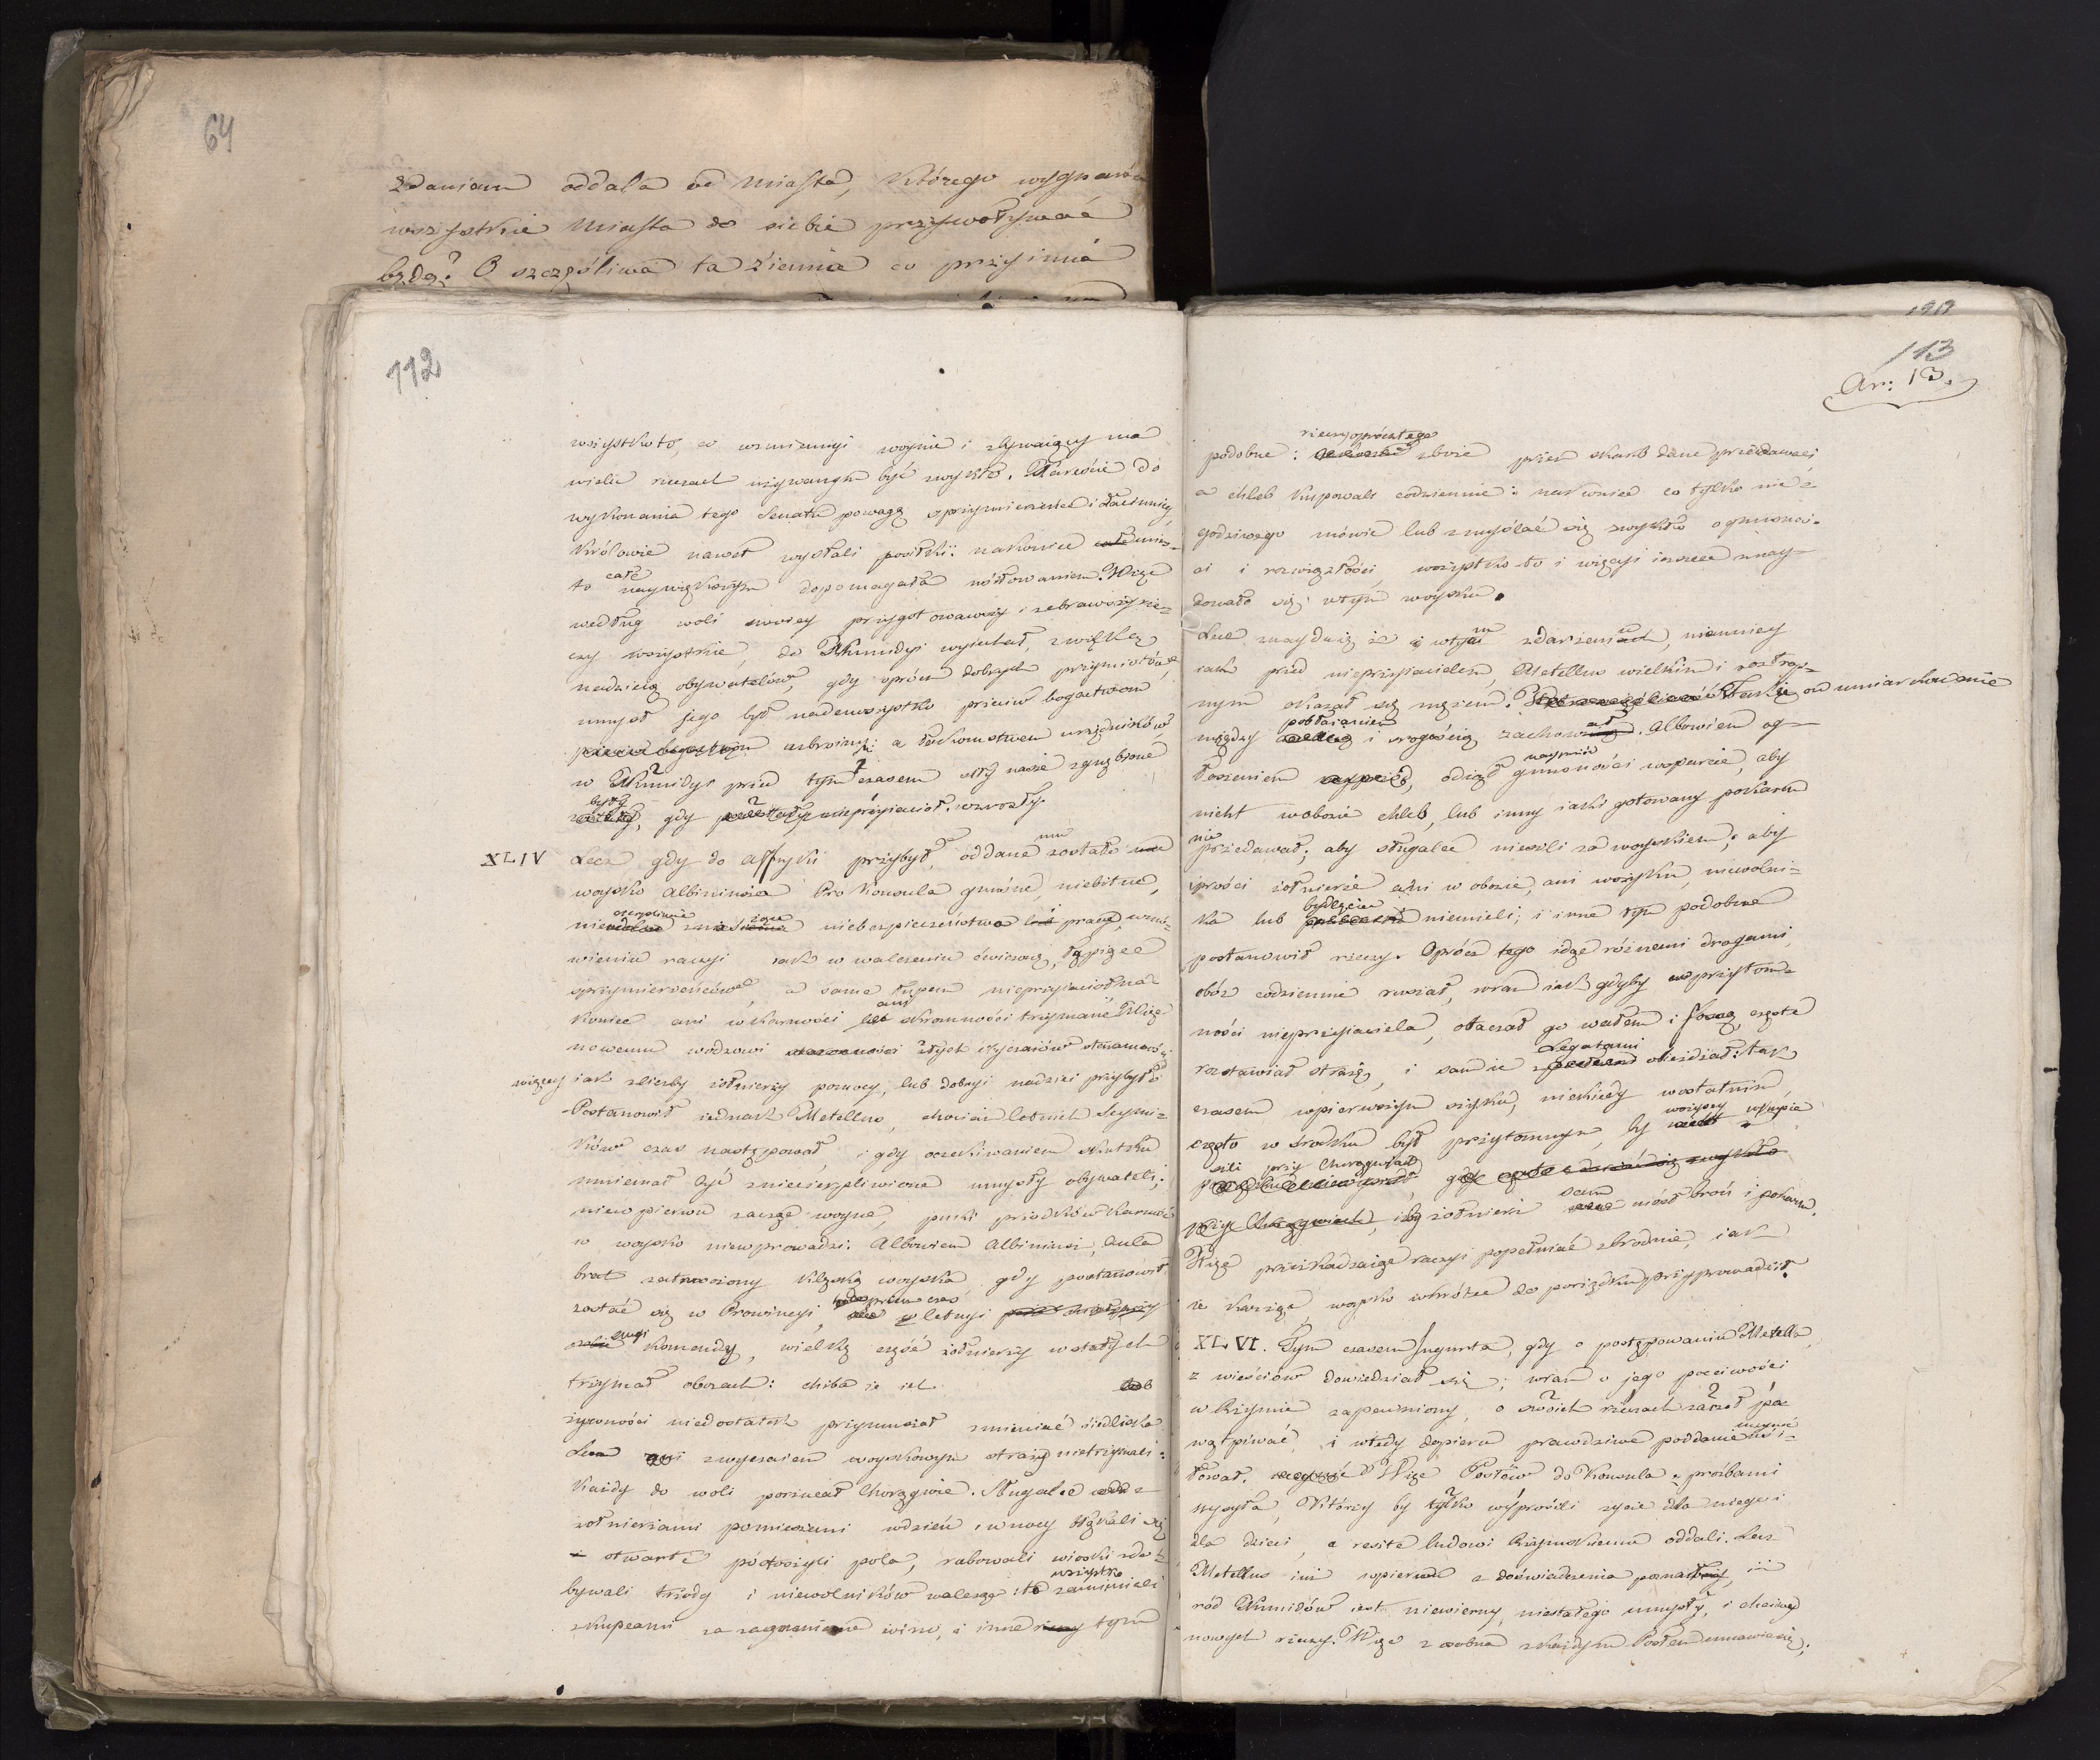 64
zdaniem oddala od Miasta, którego wygnańca
wszystkie Miasta do siebie przyswoływać
będą? O szczęśliwa ta ziemia co przyimie
112
wszystko to, co w zmiennej woynie i zbywaiący na
wielu rzeczach używanym być zwykło. Nareście do
wykonania tego Senatu powagą sprzymierzeńcy i Łacinnicy
Królowie nawet wysłali posiłki: nakoniec mias-
to całe naywiększym dopomagała usiłowaniem. Więc
według woli swoiey przygotowawszy i zebrawszy rze-
czy wszystkie, do Numidyi wyiechał, z wielką
nadzieią obywatelów, gdy oprócz dobrych przymiotów,
umysł jego był nadewszystko przeciw bogactwom
uzbroiony a łakomstwem urzędników
w Numidyi przed tym czasem siły nasze zgnębione
były, gdy nieprzyiaciół wzrosły.
XLIV Lecz gdy do Affryki przybył, oddane zostało mu
woysko Albininusa Pro Konsula gnuśne, niebitne,
nie niebezpieczeństwa i pracy, w mó-
wieniu raczyi iak w walczeniu ćwiczone, łupiące
sprzymierzeńców, a same łupem nieprzyiaciół na-
koniec ani w karności ani skromności trzymane. Więc
nowemu wodzowi złych obyczaiów staranności
więcey iak z liczby żołnierzy pomocy, lub dobryi nadziei przybyło
Postanowił iednak Metellus, chociaż letnich Seymi-
ków czas następował, i gdy oczekiwaniem skutku
mniemał być zniecierpliwione umysły obywateli;
niewpierwu zacząć woynę, puki przodków karność
w woysko niewprowadzi. Albowiem Albininus, Aula
brat zatrwożony klęską woyska gdy postanowił
zostać się w Prowincyi, przez czas letnyi
komendy, wielką część żołnierzy w stałych
trzymał obozach: chiba że ich
żywności niedostatek przymuszał zmieniać siedliska
Lecz ani zwyczaiem woyskowym straży nietrzymali:
Każdy do woli porzucał Chorągwie. Sługalce z
żołnierzami pomieszani w dzień i w nocy błąkali się
i otwarte pustoszyli pola, rabowali wioski zdo-
bywali trzody i niewolników walcząc: to wszystko zamieniali
z kupcami za zagraniczne wino, i inne tym
113
Ar: 13.
podobne: rzeczy oprócz tego zboże przez skarb dane przedawali,
a chleb kupowali codziennie: nakoniec co tylko nie-
godziwego mówić lub zmyślać się zwykło o gnuśnoś-
ci i rozwięzłości, wszystko to i więcyi ieszcze znay-
dowało się w tym woysku.
Lecz znayduię że i w tym zdarzeniu, niemniey
iak przed nieprzyiacielem, Metellus wielkim i roztrop-
nym okazał się mężem. Takie on umiarkowanie
między pobłażaniem i srogością zachował. Albowiem og-
łoszeniem odiął naypierwéy gnuśności wsparcie, aby
nicht w obozie chleb, lub inny iaki gotowany pokarm
nie przedawał; aby sługalce nieszli za woyskiem; aby
prości żołnierze ani w obozie, ani w szyku, niewolni-
ka lub bydlęcia niemieli; i inne tym podobne
postanowił rzeczy. Oprócz tego idąc różnemi drogami,
obóz codziennie ruszał, wraz iak gdyby w przytom-
ności nieprzyiaciela, otaczał go wałem i fossą, częste
rozstawiał straże, i sam ie z Legatami obieżdżał: tak
czasem w pierwszym szyku, niekiedy w ostatnim
często w środku był przytomnym, by wszyscy w kupie
szli przy Chorągwiach
żołnierz sam niósł broń i pokarm.
Więc przeszkadzaiąc raczyi popełniać zbrodnie, iak
ie karząc, woysko wkrótce do porządku przyprowadził.
XLVI. Tym czasem Jugurta, gdy o postępowaniu Metella,
z wieściów dowiedział się; wraz o jego poczciwości
w Rzymie zapewniony, o swoich rzeczach zaczął po-
wątpiwać, i wtedy dopiero prawdziwe poddanie uczynić usi-
łował. Więc Posłów do Konsula z prośbami
wysyła, Którzy by tylko wyprosili życie dla niego i
dla dzieci, a resztę ludowi Rzymskiemu oddali. Lecz
Metellus iuż wpierw z doświadczenia poznał, iż
ród Numidów iest niewierny, niestałego umysłu, i chciwy
nowych rzeczy. Więc z osobna z każdym Posłem umawia się,